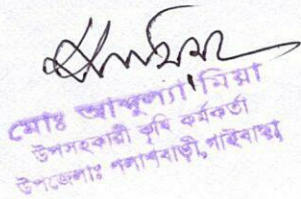 মোঃ আব্দুল্যা মিয়া
উপসহকারী কৃষি কর্মকর্তা
উপজেলাঃ পলাশবাড়ী, গাইবান্ধা